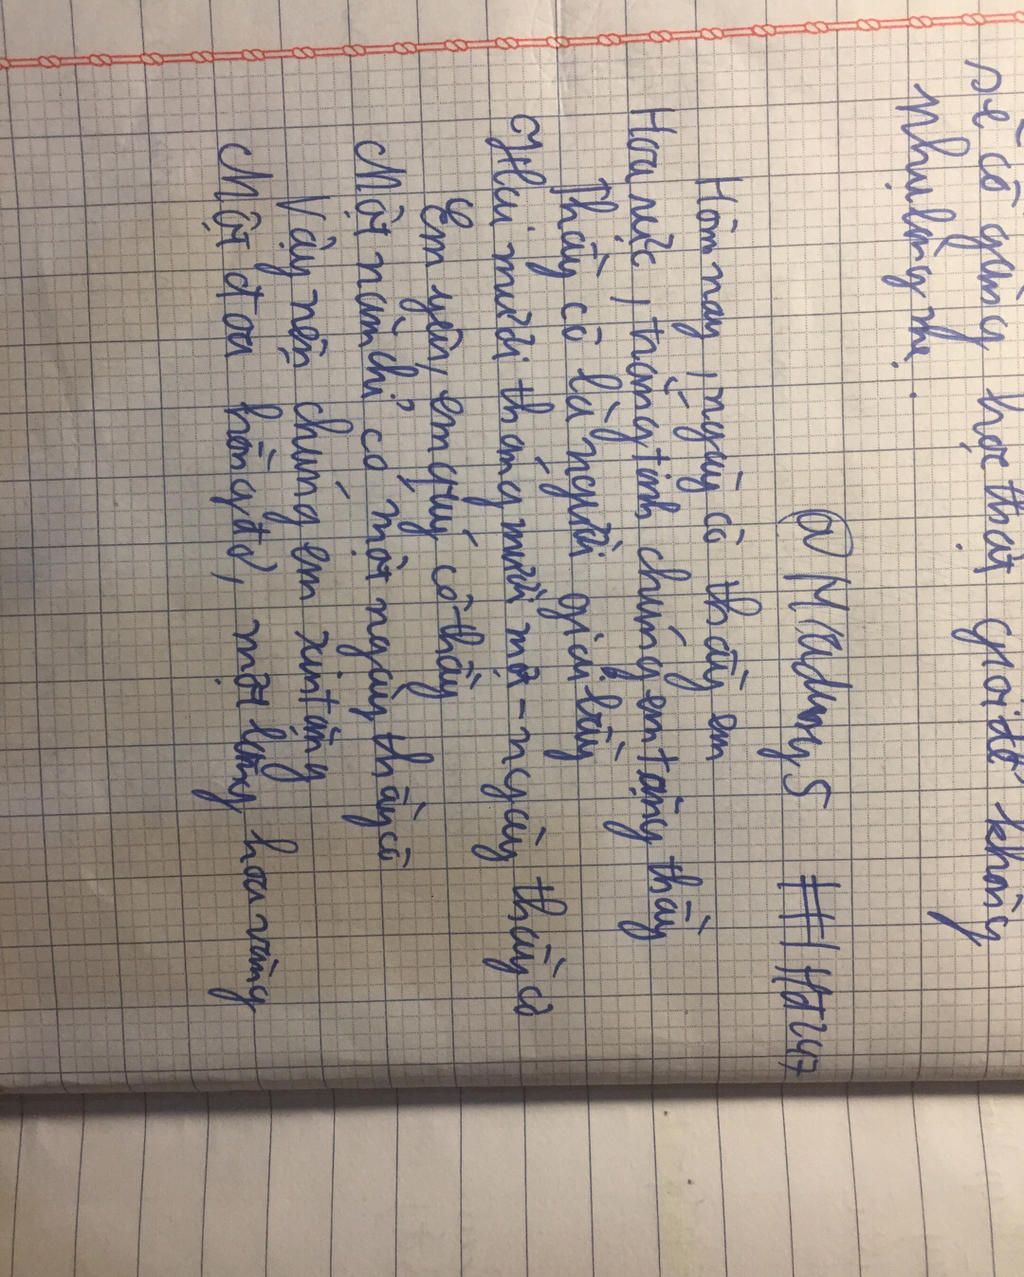 sẽ cố gắng học thật giỏi để không
phụ lòng mẹ.
@MiadmyS #Hd247
Hôm nay, ngày cô thầy em
Hoa nức, trống tình chúng em tặng thầy
Thầy cô là người giỏi lắm
Hai mươi tháng mười một - ngày thầy cô
Em yêu, em quý cô thầy
Một năm chỉ có một ngày thầy cô
Vậy nên chúng em xin tặng
Một đoá hồng đỏ, một lẵng hoa vàng